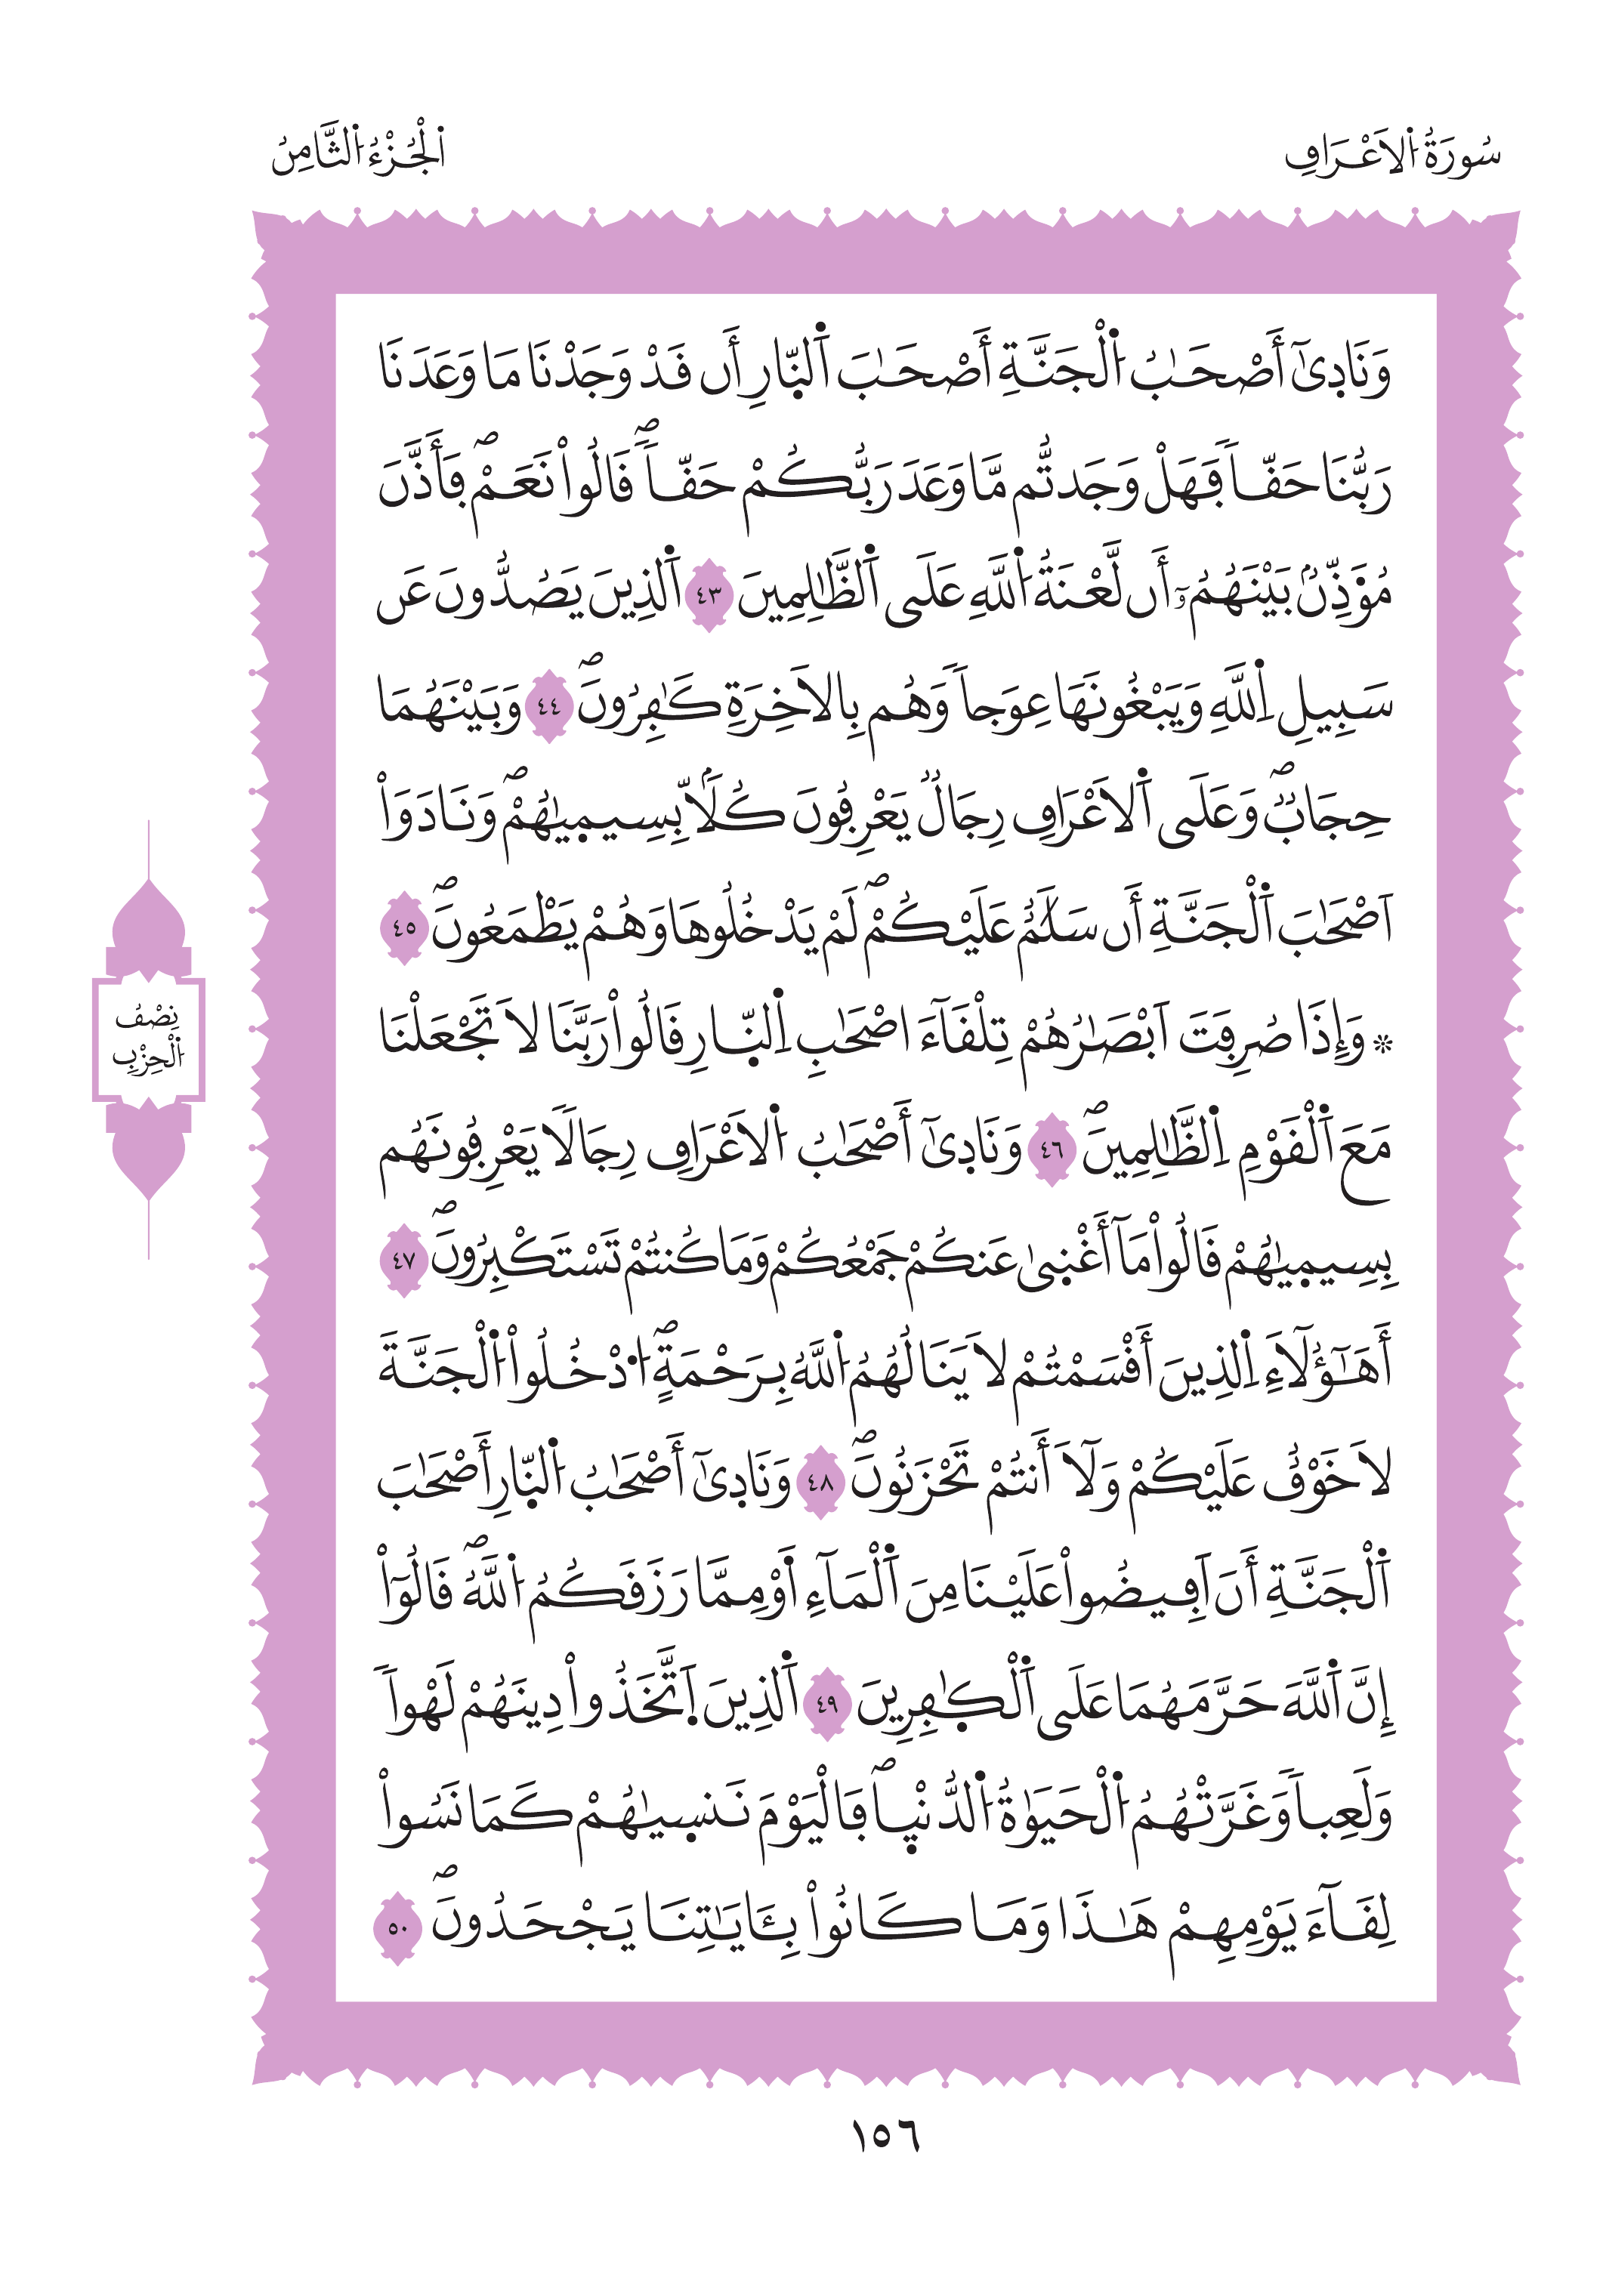 سُورَةُ اُ۬لَاعْرَافِ
اَ۬لْجُزْءُ اُ۬لثَّامِنُ
وَنَادِىٰٓ أَصْحَٰبُ اُ۬لْجَنَّةِ أَصْحَٰبَ اَ۬لنّ۪ارِ أَن قَدْ وَجَدْنَا مَا وَعَدَنَا
رَبُّنَا حَقّاٗ فَهَلْ وَجَدتُّم مَّا وَعَدَ رَبُّكُمْ حَقّاٗۖ قَالُواْ نَعَمْۖ فَأَذَّنَ
مُؤَذِّنُۢ بَيْنَهُمُۥٓ أَن لَّعْنَةُ اُ۬للَّهِ عَلَي اَ۬لظَّٰلِمِينَ ٤٣ اَ۬لذِينَ يَصُدُّونَ عَن
سَبِيلِ اِ۬للَّهِ وَيَبْغُونَهَا عِوَجاٗ وَهُم بِالَاخِرَةِ كَٰفِرُونَۖ ٤٤ وَبَيْنَهُمَا
حِجَابٞۖ وَعَلَي اَ۬لَاعْرَافِ رِجَالٞ يَعْرِفُونَ كُلّاَۢ بِسِيم۪يٰهُمْۖ وَنَادَوَاْ
اَصْحَٰبَ اَ۬لْجَنَّةِ أَن سَلَٰمٌ عَلَيْكُمْۖ لَمْ يَدْخُلُوهَا وَهُمْ يَطْمَعُونَۖ ٤٥
۞ وَإِذَا صُرِفَتَ اَبْصَٰرُهُمْ تِلْقَآءَ اصْحَٰبِ اِ۬لنّ۪ارِ قَالُواْ رَبَّنَا لَا تَجْعَلْنَا
مَعَ اَ۬لْقَوْمِ اِ۬لظَّٰلِمِينَۖ ٤٦ وَنَادِىٰٓ أَصْحَٰبُ اُ۬لَاعْرَافِ رِجَالاٗ يَعْرِفُونَهُم
بِسِيم۪يٰهُمْ قَالُواْ مَآ أَغْن۪يٰ عَنكُمْ جَمْعُكُمْ وَمَا كُنتُمْ تَسْتَكْبِرُونَۖ ٤٧
أَهَٰٓؤُلَآءِ اِ۬لذِينَ أَقْسَمْتُمْ لَا يَنَالُهُمُ اُ۬للَّهُ بِرَحْمَةٍۖ ا۟دْخُلُواْ اُ۬لْجَنَّةَ
لَا خَوْفٌ عَلَيْكُمْ وَلَآ أَنتُمْ تَحْزَنُونَۖ ٤٨ وَنَادِىٰٓ أَصْحَٰبُ اُ۬لنّ۪ارِ أَصْحَٰبَ
اَ۬لْجَنَّةِ أَنَ اَفِيضُواْ عَلَيْنَا مِنَ اَ۬لْمَآءِ اَ۬وْ مِمَّا رَزَقَكُمُ اُ۬للَّهُۖ قَالُوٓاْ
إِنَّ اَ۬للَّهَ حَرَّمَهُمَا عَلَي اَ۬لْكٰ۪فِرِينَ ٤٩ اَ۬لذِينَ اَ۪تَّخَذُواْ دِينَهُمْ لَهْواٗ
وَلَعِباٗ وَغَرَّتْهُمُ اُ۬لْحَيَوٰةُ اُ۬لدُّنْي۪اۖ فَالْيَوْمَ نَنس۪يٰهُمْ كَمَا نَسُواْ
لِقَآءَ يَوْمِهِمْ هَٰذَا وَمَا كَانُواْ بِـَٔايَٰتِنَا يَجْحَدُونَۖ ٥٠
نِصْفُ
اُ۬لْحِزْبِ
١٥٦